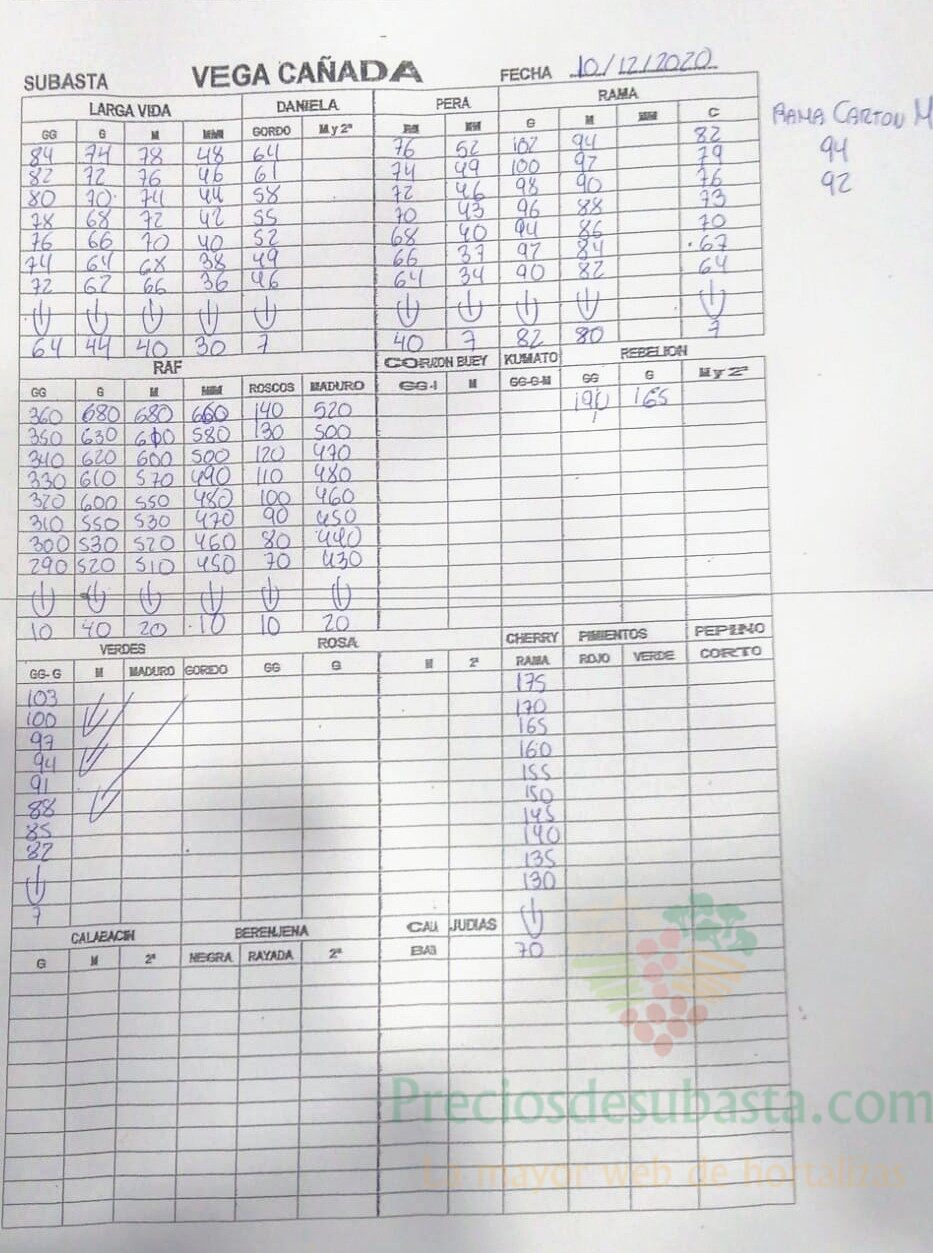 SUBASTA VEGA CAÑADA FECHA 10/12/2020
LARGA VIDA DANIELA PERA RAMA
GG G M MM GORDO M y 2ª M MM G M MM C RAMA CARTON M
84 74 78 48 64 76 52 102 94 82 94
82 72 76 46 61 74 49 100 92 79 92
80 70 74 44 58 72 46 98 90 76
78 68 72 42 55 70 43 96 88 73
76 66 70 40 52 68 40 94 86 70
74 64 68 38 49 66 37 92 84 67
72 62 66 36 46 64 34 90 82 64
64 44 40 30 7 40 7 82 80 7
RAF CORAZON BUEY KUMATO REBELION
GG G M MM ROSCOS MADURO GG-G M GG-G-M GG G M y 2ª
360 680 680 660 140 520 190 165
350 630 610 580 130 500
340 620 600 500 120 490
330 610 570 490 110 480
320 600 550 480 100 460
310 550 530 470 90 450
300 530 520 460 80 440
290 520 510 450 70 430
10 40 20 10 10 20
VERDES ROSA CHERRY PIMIENTOS PEPINO
GG-G M MADURO GORDO GG G M 2ª RAMA ROJO VERDE CORTO
103 175
100 170
97 165
94 160
91 155
88 150
85 145
82 140
135
130
7
CALABACIN BERENJENA CAL JUDIAS
G M 2ª NEGRA RAYADA 2ª BAB 70
Preciosdesubasta.com
La mayor web de hortalizas